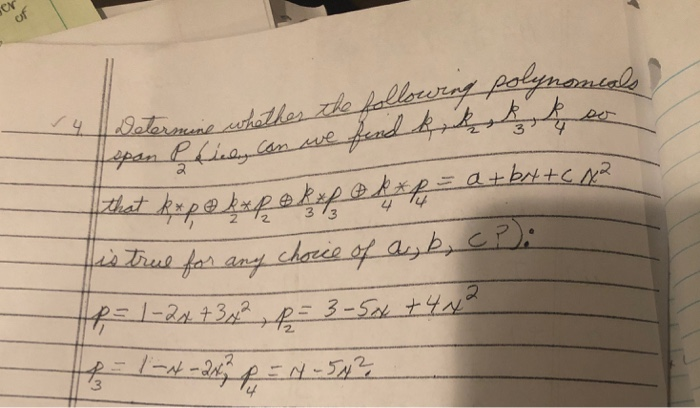 or
of
4. Determine whether the following polynomials
span P₂ (i.e., can we find k₁, k₂, k₃, k₄ so
that k₁*p₁ ⊕ k₂*p₂ ⊕ k₃*p₃ ⊕ k₄*p₄ = a+bx+cx²
is true for any choice of a, b, c?):
p₁ = 1-2x+3x², p₂ = 3-5x+4x²
p₃ = 1-x-2x², p₄ = x-5x².